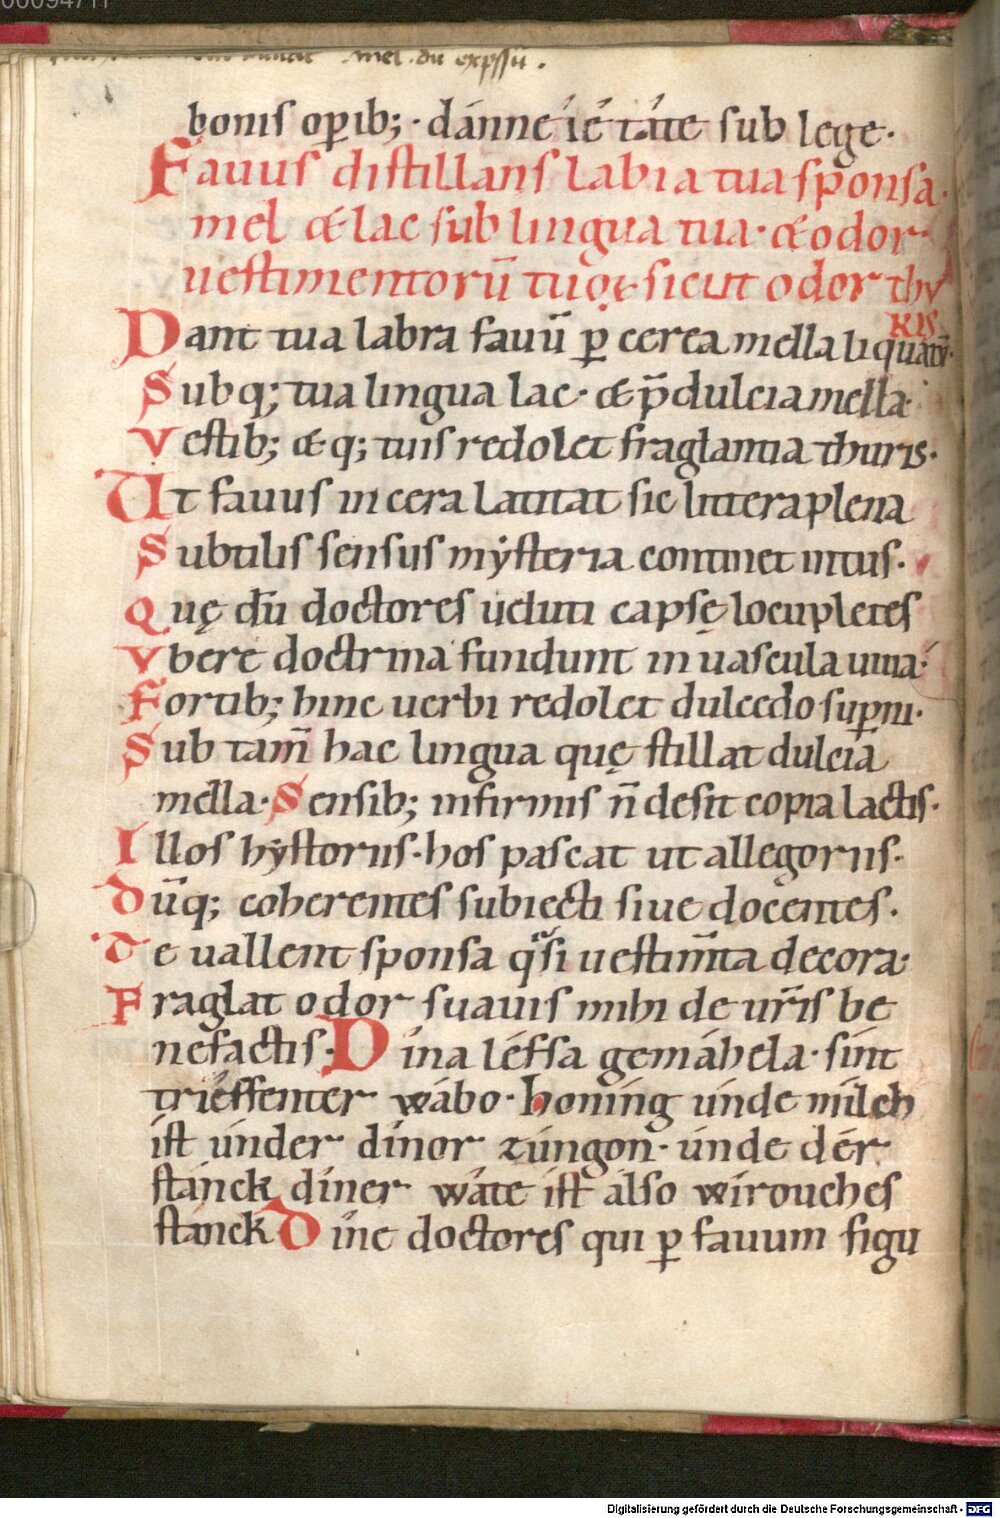 00094711
mel . dū expssū .
bonis op̲ib; · dánne íe táte sub lege ·
Fauus distillans labia tua sponsa ·
mel & lac sub lingua tua · & odor
uestimentorū tuoꝝ sicut odor thy
RIS.
Dant tua labra fauū p̲ cerea mella liquatū ·
Subq; tua lingua lac · & p̄dulcia mella ·
Vestib; & q; tuis redolet fraglantia thuris ·
Ut fauus in cera latitat sic littera plena
Subtilis sensus mẏsteria continet intus ·
Quę dū doctores ueluti capsę locupletes
Vbere doctrina fundunt in uascula uiua ·
Fortib; hinc uerbi redolet dulcedo sup̲ni ·
Sub tam̄ hac lingua quę stillat dulcia
mella · Sensib; infirmis n̄ desit copia lactis ·
Illos hẏstoriis · hos pascat ut allegoriis ·
Dūq; coherentes subiecti siue docentes ·
Te uallent sponsa qᵃsi uestim̄ta decora ·
Fraglat odor suauis mihi de ur̄is be
nefactis · Dína léfsa gemáhela · sínt
tríeffenter wábo · hóning únde mílch
íst únder dínor zúngon · únde dér
stánck díner wáte íst álso wírouches
stánck Díne doctores qui p̲ fauum figu
Digitalisierung gefördert durch die Deutsche Forschungsgemeinschaft - DFG